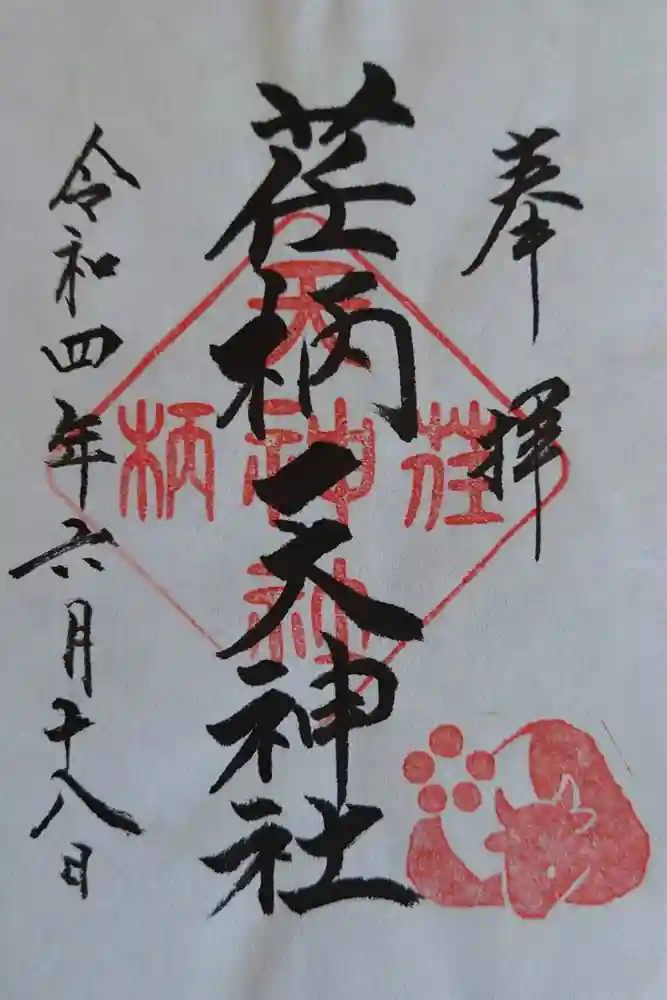 奉拝
荏柄天神社
令和四年六月十八日
荏
天神社
柄